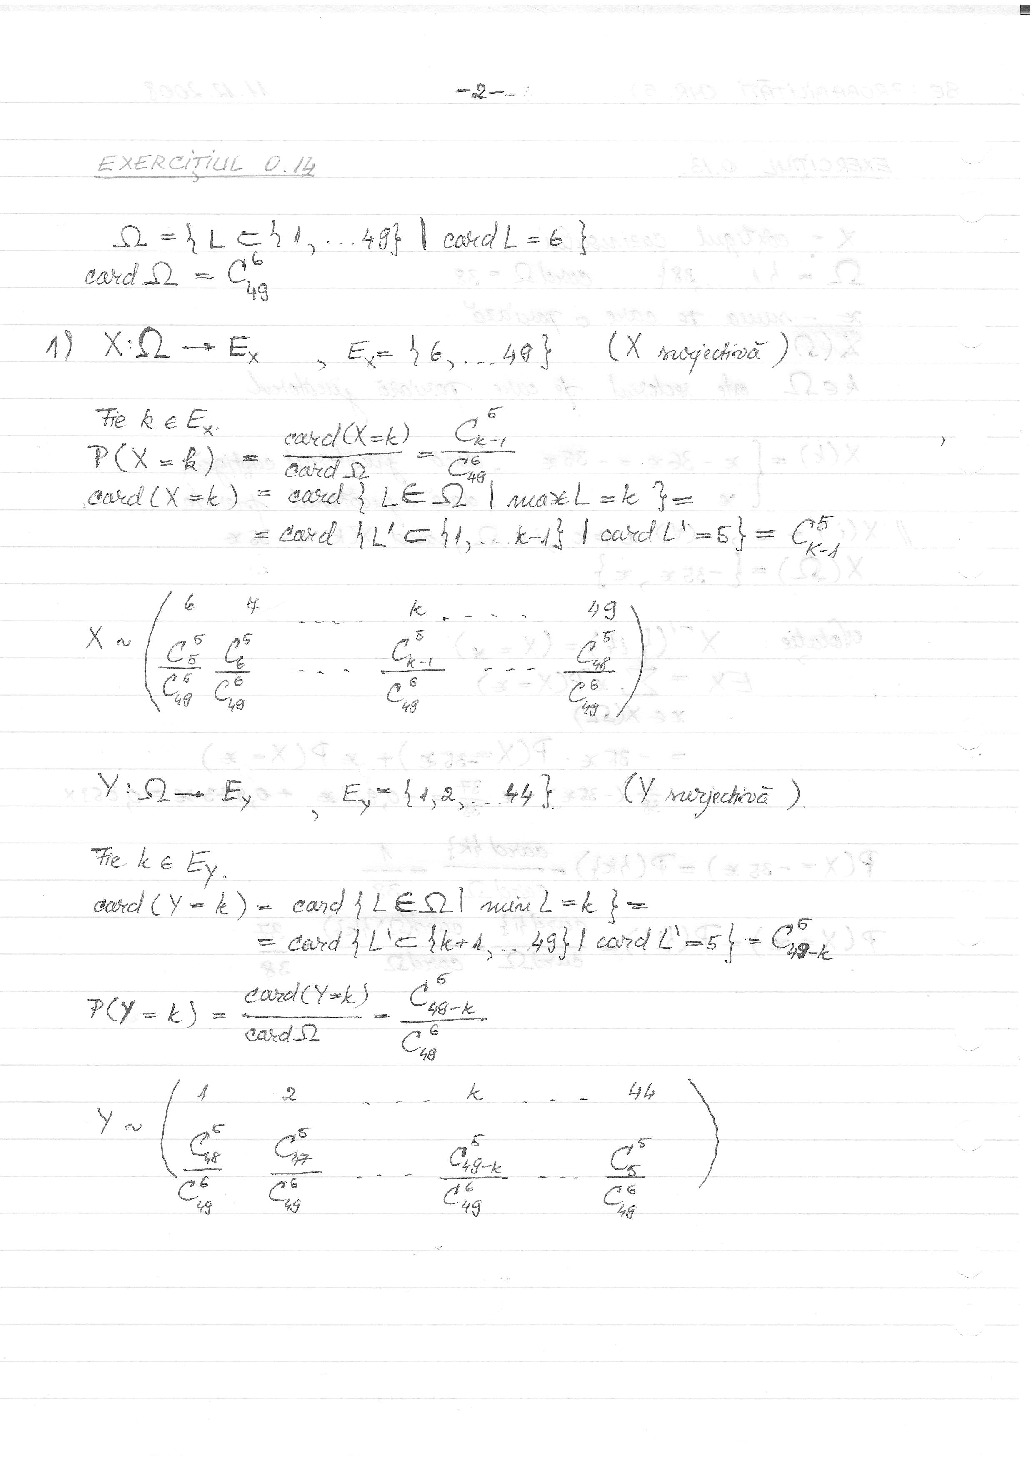 -2-
EXERCIȚIUL 0.14
Ω = { L ⊂ {1, ... 49} | card L = 6 }
card Ω = C_49^6
1) X: Ω → E_X , E_X = {6, ... 49} (X surjectivă)
Fie k ∈ E_X.
P(X = k) = card(X=k) / card Ω = C_{k-1}^5 / C_49^6
card(X=k) = card { L ∈ Ω | max L = k } =
= card {L' ⊂ {1, ... k-1} | card L' = 5} = C_{k-1}^5
X ~ ( 6 7 .... k ..... 49 )
( C_5^5 / C_49^6 C_6^5 / C_49^6 ... C_{k-1}^5 / C_49^6 ... C_48^5 / C_49^6 )
Y: Ω → E_Y , E_Y = {1, 2, ... 44}. (Y surjectivă).
Fie k ∈ E_Y.
card(Y = k) = card { L ∈ Ω | min L = k } =
= card {L' ⊂ {k+1, ... 49} | card L' = 5} = C_{49-k}^5
P(Y = k) = card(Y=k) / card Ω = C_{49-k}^5 / C_49^6
Y ~ ( 1 2 ... k ... 44 )
( C_48^5 / C_49^6 C_47^5 / C_49^6 ... C_{49-k}^5 / C_49^6 ... C_5^5 / C_49^6 )